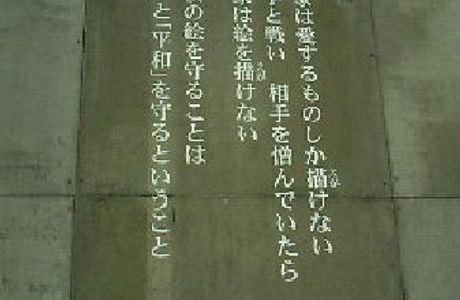 は愛するものしか描けない
と戦い 相手を憎んでいたら
は絵を描けない
の絵を守ることは
と「平和」を守るということ